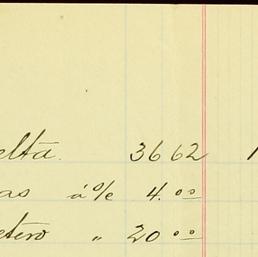 elta. 36 62 1
as á % 4.00
etero " 20 00